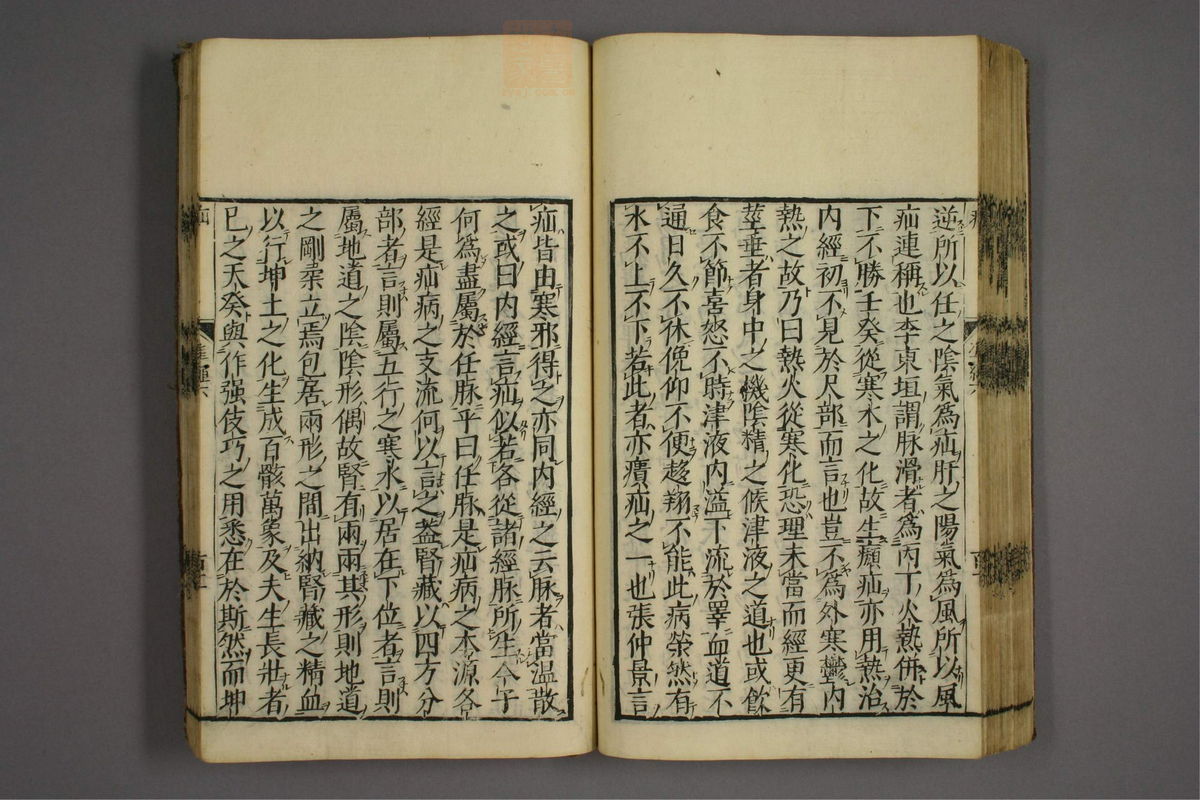 逆所以任之陰氣為疝肝之陽氣為風所以風
疝連稱也李東垣謂脉滑者為丙丁火熱佛於
下不勝壬癸從寒水之化故生癩疝亦用熱治
内經初不見於尺部而言也豈不為外寒鬱内
熱之故乃曰熱火從寒化恐理未當而經更有
莖垂者身中之機陰精之候津液之道也或飲
食不節喜怒不時津液内溢下流於睪血道不
通日久不休俛仰不便趍翔不能此病榮然有
水不上不下若此者亦㿉疝之一也張仲景言
疝皆由寒邪得之亦同内經之云脉者當温散
之或曰内經言疝似若各從諸經脉所生今子
何為盡屬於任脉乎曰任脉是疝病之本源各
經是疝病之支流何以言之盖腎藏以四方分
部者言則屬五行之寒水以居在下位者言則
屬地道之陰陰形偶故腎有兩兩其形則地道
之剛柔立焉包居兩形之間出納腎藏之精血
以行坤土之化生成百骸萬象及夫生長壯者
已之天癸與作强伎巧之用悉在於斯然而坤